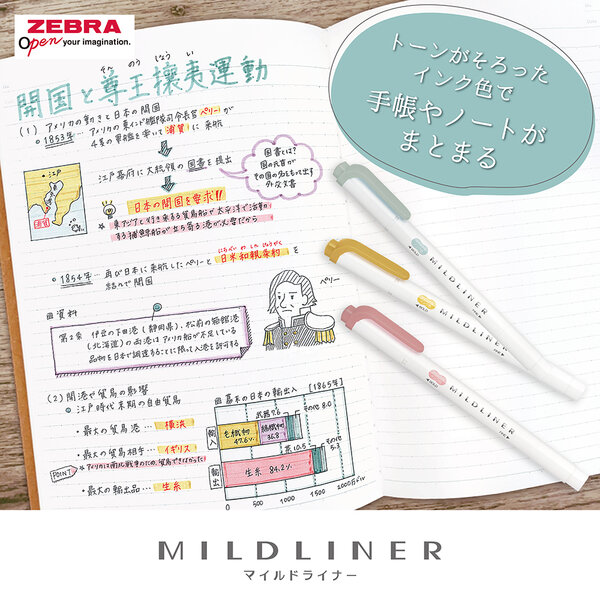 ZEBRA
Open your imagination.
トーンがそろった
インク色で
手帳やノートが
まとまる
そんのう じょうい
開国と尊王攘夷運動
(1) アメリカの動きと日本の開国
1853年… アメリカの東インド艦隊司令長官ペリーが
4隻の軍艦を率いて浦賀に来航
江戸
浦賀
江戸幕府に大統領の国書を提出
国書とは?
国の元首が
その国の名をもって出す
外交文書
日本の開国を要求!!
★東アジアと行き来する貿易船や太平洋で活動
する捕鯨船が立ち寄る港が必要だから
にちべい わ しん じょうやく
1854年… 再び日本に来航したペリーと日米和親条約を
結んで開国
ペリー
資料
第2条 伊豆の下田港(静岡県)、松前の箱館港
(北海道)の両港はアメリカ船が不足している
品物を日本で調達することに限って入港を許可する
(2) 開港や貿易の影響
江戸時代末期の自由貿易
・最大の貿易港… 横浜
・最大の貿易相手… イギリス
POINT
★アメリカは南北戦争のため、貿易できなかった!
・最大の輸出品… 生糸
幕末の日本の輸出入 [1865年]
武器7.6
その他8.0
輸入
毛織物
47.6%
綿織物
36.8
茶10.5
その他
5.3
輸出
生糸 84.2%
0 500 1000 1500 2000万ドル
MILDLINER
MILDLINER
MILDLINER
MILDLINER
マイルドライナー